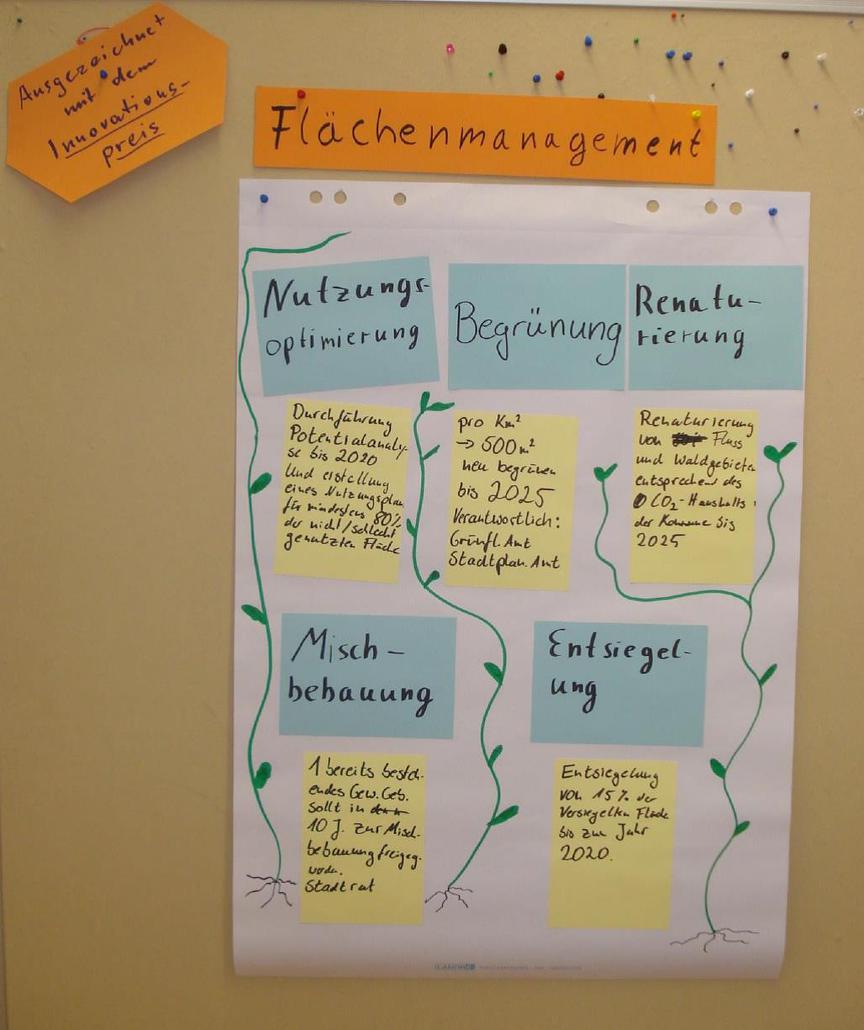 Ausgezeichnet
mit dem
Innovations-
preis
Flächenmanagement
Nutzungs-
optimierung
Durchführung
Potentialanaly-
se bis 2020
Und erstellung
eines Nutzungsplan
für mindestens 80%
der nicht/schlecht
genutzten Fläche
Begrünung
pro Km²
→ 500m²
neu begrünen
bis 2025
Verantwortlich:
Grünfl. Amt
Stadtplan. Amt
Renatu-
rierung
Renaturierung
von Fluss
und Waldgebieten
entsprechend des
CO₂-Haushalts
der Kommune bis
2025
Misch-
bebauung
1 bereits besteh-
endes Gew. Geb.
sollt in
10 J. zur Misch-
bebauung freigeg.
Stadtrat
Entsiegel-
ung
Entsiegelung
von 15% der
Versiegelten Fläche
bis zum Jahr
2020.